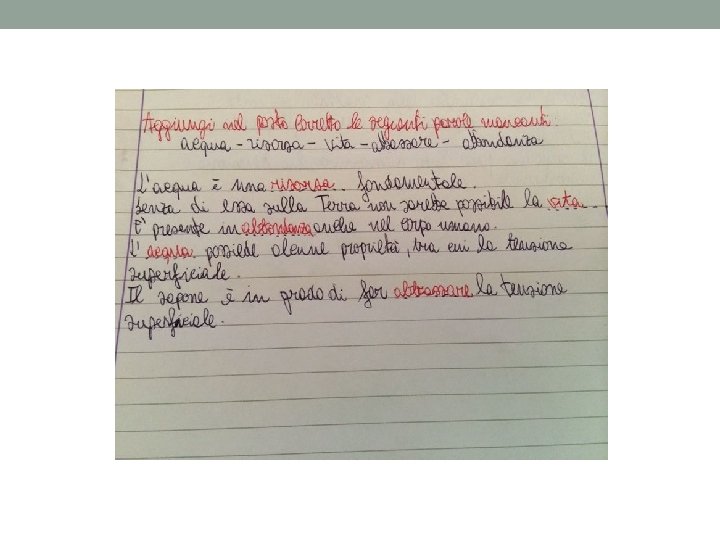 Aggiungi nel posto corretto le seguenti parole mancanti:
acqua - risorsa - vita - abbassare - abbondanza
L'acqua è una risorsa fondamentale.
Senza di essa sulla Terra non sarebbe possibile la vita.
E' presente in abbondanza anche nel corpo umano.
L'acqua possiede alcune proprietà, tra cui la tensione
superficiale.
Il sapone è in grado di far abbassare la tensione
superficiale.